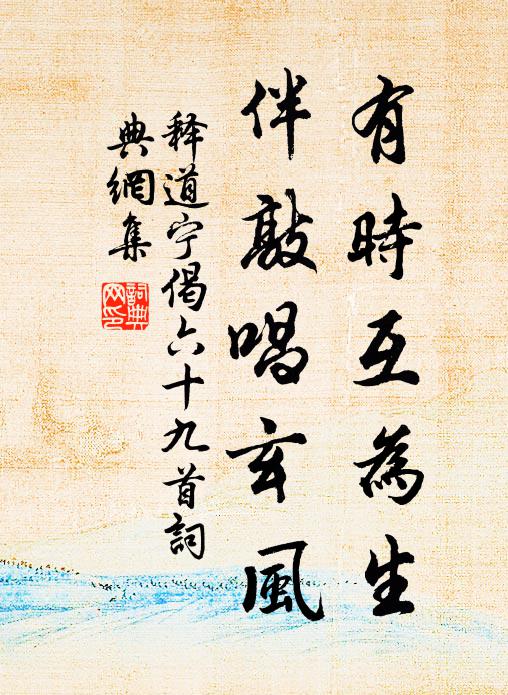 有時互為生
伴敲唱玄風
释道宁偈六十九首詞
典網集
詞典
网印